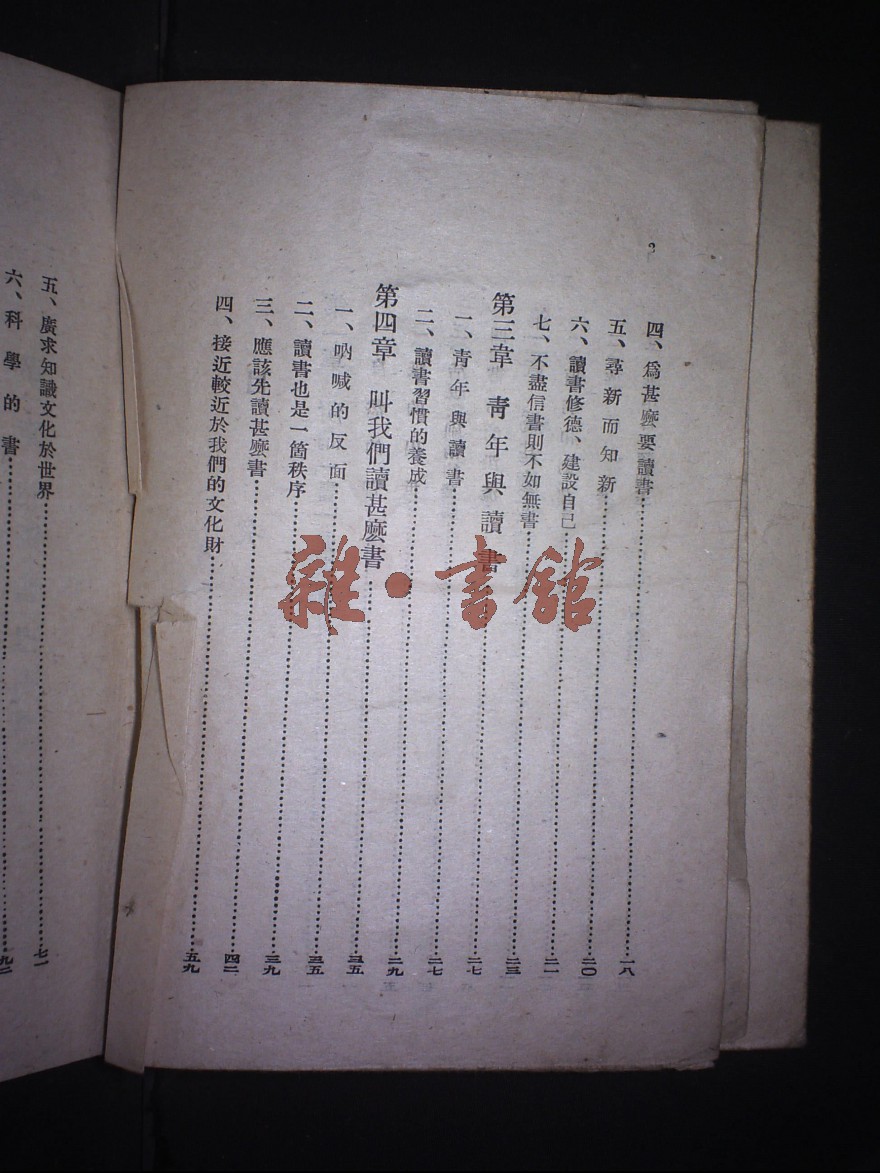 四、爲甚麽要讀書……一八
五、尋新而知新……二〇
六、讀書修德、建設自己……二一
七、不盡信書則不如無書……二三
第三章 靑年與讀書……二七
一、靑年與讀書……二七
二、讀書習慣的養成……二九
第四章 叫我們讀甚麽書……三五
一、吶喊的反面……三五
二、讀書也是一箇秩序……三九
三、應該先讀甚麽書……四二
四、接近較近於我們的文化財……五九
五、廣求知識文化於世界……七一
六、科學的書……九二
雜·書館